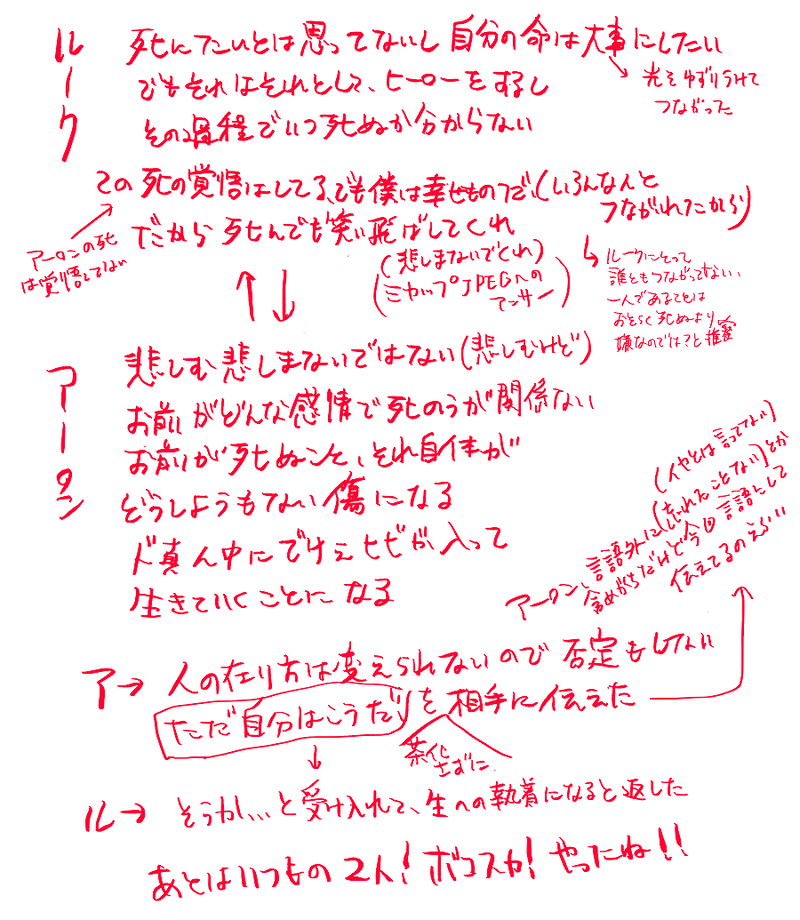 ルーク
死にたいとは思ってないし 自分の命は大事にしたい
→光をゆずりうけて
つながった
でもそれはそれとして、ヒーローをするし
その過程でいつ死ぬか分からない
その死の覚悟はしてる、でも僕は幸せものだ、(いろんな人と
つながれたから)
だから 死んでも笑い飛ばしてくれ
(悲しまないでくれ)
(ミカップJPEGへの
アンサー)
アーロンの死
は覚悟してない
ルークにとって
誰ともつながってない、
一人であることは
おそらく死ぬより
嫌なのでは?と推察
アーロン
悲しむ悲しまないではない(悲しむけど)
お前がどんな感情で死のうが関係ない
お前が死ぬこと、それ自体が
どうしようもない傷になる
ド真ん中にでけえヒビが入って
生きていくことになる
(イヤとは言ってない)
(忘れたことない)とか
アーロン、言語外に
含めがちだけど今回言語にして
伝えてるのえらい
ア→ 人の在り方は変えられないので 否定もしない
ただ「自分はこうだ」を相手に伝えた
茶化
さずに
ル→ そうか…と受け入れて、生への執着になると返した
あとはいつもの2人!ボコスカ!やったね!!